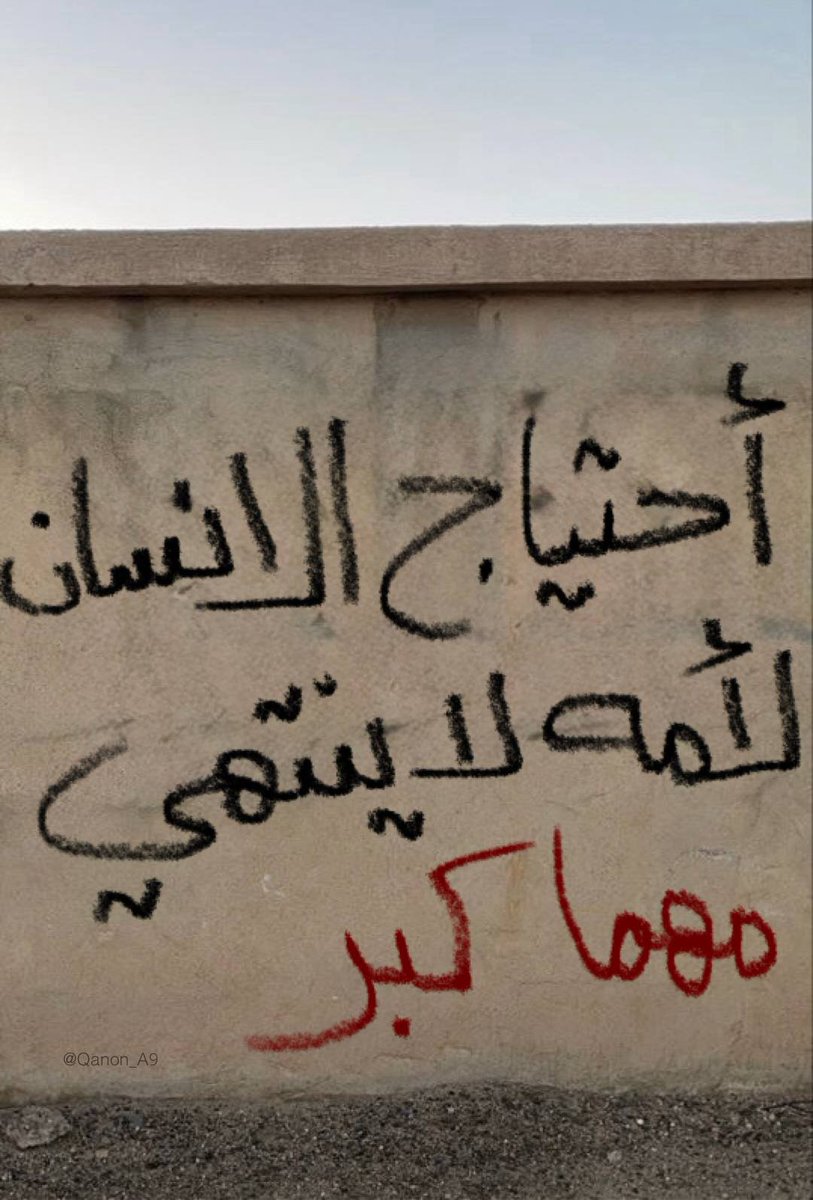 أحتياج الانسان
لأمه لا ينتهي
مهما كبر
@Qanon_A9